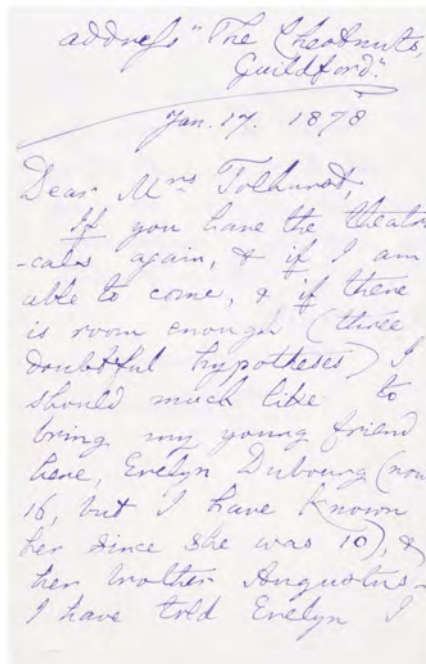 address "The Chestnuts,
Guildford."
Jan. 17. 1878
Dear Mrs Tolhurst,
If you have the theatri
-cals again, & if I am
able to come, & if there
is room enough (three
doubtful hypotheses) I
should much like to
bring my young friend
here, Evelyn Dubourg (now
16, but I have known
her since she was 10), &
her brother Augustus-
I have told Evelyn I